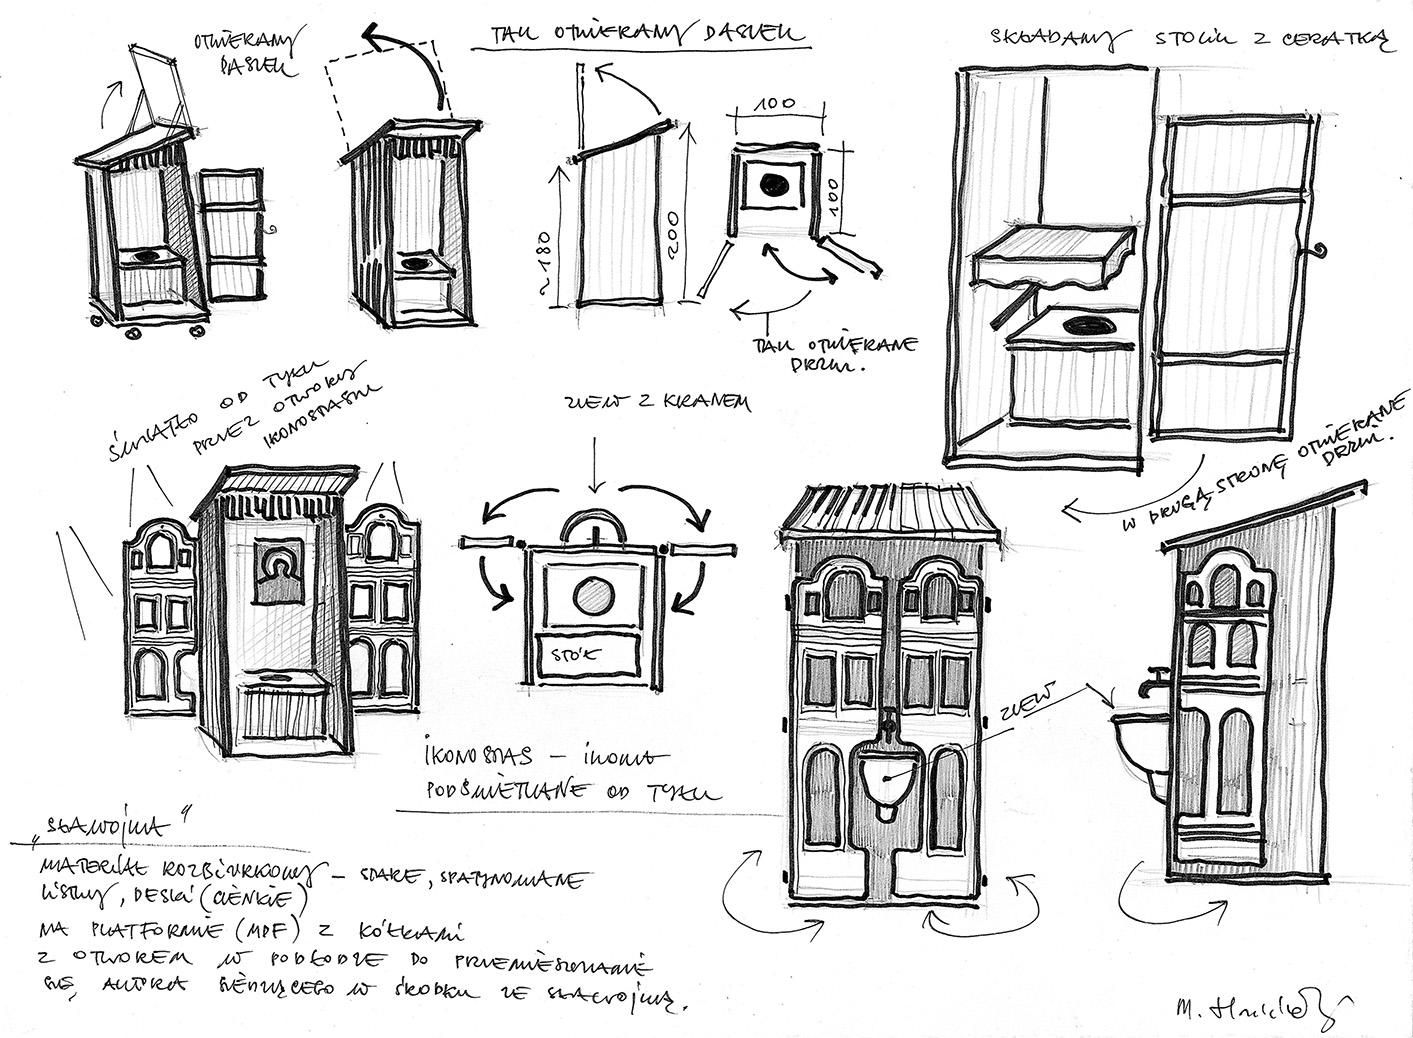 OTWIERANY
DASZEK
TAK OTWIERANY DASZEK
SKŁADANY STOLIK Z CERATKĄ
100
100
~180
200
TAK OTWIERANE
DRZWI.
ŚWIATŁO OD TYŁU
PRZEZ OTWORY
IKONOSTASU
ZLEW Z KRANEM
W DRUGĄ STRONĘ OTWIERANE
DRZWI.
STÓŁ
ZLEW
IKONOSTAS – IKONA
PODŚWIETLANE OD TYŁU
„SŁAWOJKA"
MATERIAŁ ROZBIÓRKOWY – STARE, SPATYNOWANE
LISTWY, DESKI (CIENKIE)
NA PLATFORMIE (MDF) Z KÓŁKAMI
Z OTWOREM W PODŁODZE DO PRZEMIESZCZANIA
SIĘ, AKTORA SIEDZĄCEGO W ŚRODKU ZE SŁAWOJKĄ.
M.